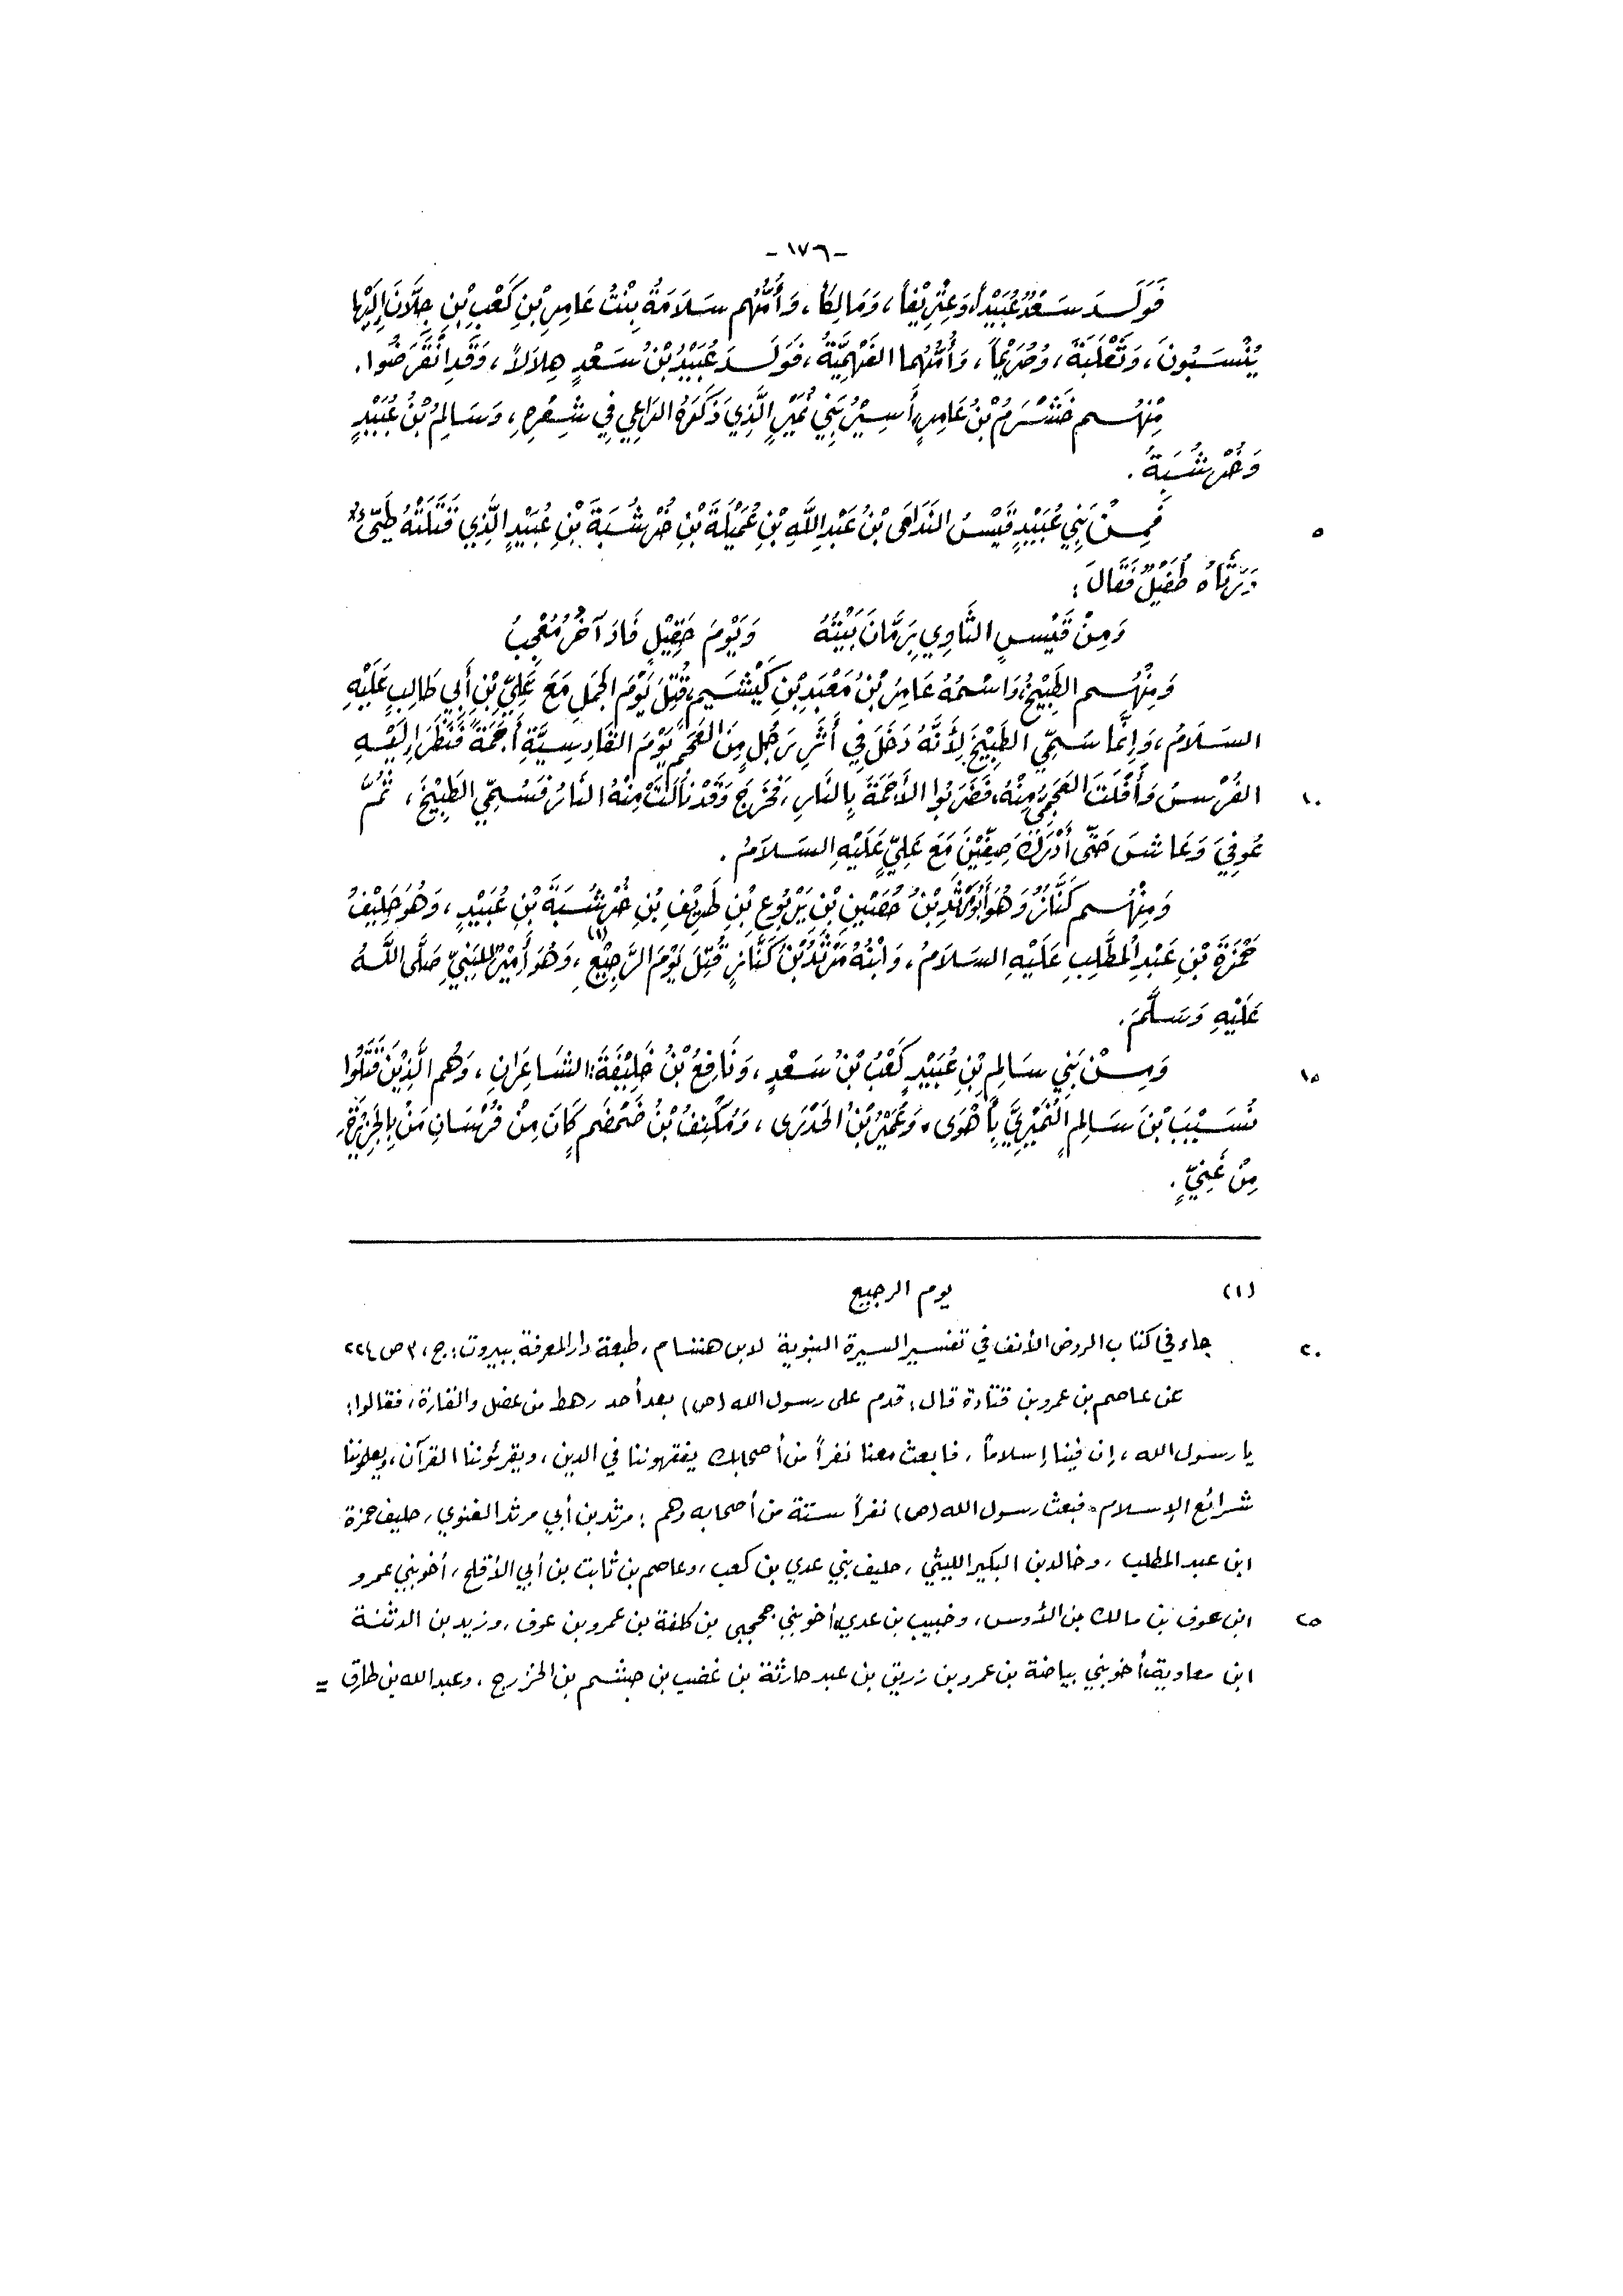 -١٧٦-
فَوَلَدَ سَعْدٌ عُبَيْداً، وَعِتْرِيْفاً، وَمَالِكاً، وَأُمُّهُم سَلاَمَةُ بِنْتُ عَامِرِ بْنِ كَعْبِ بْنِ جِلاَّنَ إِلَيْهَا
يُنْسَبُونَ، وَثَعْلَبَةَ، وَصُرَيْماً، وَأُمُّهُما الفَهْمِيَّةُ، فَوَلَدَ عُبَيْدُ بْنُ سَعْدٍ هِلاَلاً، وَقَدِ انْقَرَضُوا.
مِنْهُم خَشْرَمُ بْنُ عَامِرٍ، أَسِيْرُ بَنِي نُمَيْرٍ الَّذِي ذَكَرَهُ الرَاعِي فِي شِعْرِهِ، وَسَالِمُ بْنُ عُبَيْدٍ
وَخُرْشُبَةُ.
٥ فَمِنْ بَنِي عُبَيْدٍ قَيْسُ النَدَامَى بْنُ عَبْدِ اللَّهِ بْنِ عُمَيْلَةَ بْنِ خُرْشُبَةَ بْنِ عُبَيْدٍ الَّذِي قَتَلَتْهُ طَيِّءٌ
وَرَثَاهُ طُفَيْلٌ فَقَالَ:
وَمِنْ قَيْسٍ الثَّاوِي بِرَمَّانَ بَيْتُهُ وَيَوْمَ حَقِيْلٍ فَادَ آخَرُ مُعْجِبُ
وَمِنْهُم الطَبِيْخُ، وَاسْمُهُ عَامِرُ بْنُ مَعْبَدِ بْنِ كَيْشَمٍ، قُتِلَ يَوْمَ الجَمَلِ مَعَ عَلِيِّ بْنِ أَبِي طَالِبٍ عَلَيْهِ
السَلاَمُ، وَإِنَّمَا سُمِّيَ الطَبِيْخَ لِأَنَّهُ دَخَلَ فِي أَثَرِ رَجُلٍ مِنَ العَجَمِ يَوْمَ القَادِسِيَّةِ أَجَمَةً فَنَظَرَ إِلَيْهِ
١٠ الفُرْسُ وَأَفْلَتَ العَجَمِيُّ مِنْهُ، فَضَرَبُوا الأَجَمَةَ بِالنَارِ، فَخَرَجَ وَقَدْ نَالَتْ مِنْهُ النَارُ فَسُمِّيَ الطَبِيْخَ، ثُمَّ
عُوفِيَ وَعَاشَ حَتَّى أَدْرَكَ صِفِّيْنَ مَعَ عَلِيٍّ عَلَيْهِ السَلاَمُ.
وَمِنْهُم كَنَّازٌ وَهُوَ أَبُو مَرْثَدِ بْنُ حُصَيْنِ بْنِ يَرْبُوعِ بْنِ طَرِيْفِ بْنِ خُرْشُبَةَ بْنِ عُبَيْدٍ، وَهُوَ حَلِيْفُ
حَمْزَةَ بْنِ عَبْدِ المُطَّلِبِ عَلَيْهِ السَلاَمُ، وَابْنُهُ مَرْثَدُ بْنُ كَنَّازٍ قُتِلَ يَوْمَ الرَّجِيْعِ(١)، وَهُوَ أَمِيْرٌ لِلنَبِيِّ صَلَّى اللَّهُ
عَلَيْهِ وَسَلَّمَ.
١٥ وَمِنْ بَنِي سَالِمِ بْنِ عُبَيْدٍ كَعْبُ بْنُ سَعْدٍ، وَنَافِعُ بْنُ خَلِيْفَةَ: الشَاعِرَانِ، وَهُم الَّذِيْنَ قَتَلُوا
نُسَيْبَ بْنَ سَالِمٍ النُمَيْرِيَّ بِأَهْوَى، وَعُمَيْرُ بْنُ الحَدْرَى، وَمُكْنِفُ بْنُ ضَمْضَمٍ كَانَ مِنْ فُرْسَانِ مَنْ بِالجَزِيْرَةِ
مِنْ غَنِيٍّ.
(١) يوم الرجيع
٢٠ جاء في كتاب الروض الأنف في تفسير السيرة النبوية لابن هشام، طبعة دار المعرفة ببيروت: ج، ٣ ص ٢٢٤
عن عاصم بن عمرو بن قتادة قال: قدم على رسول الله (ص) بعد أحد رهط من عضل والقارة، فقالوا:
يا رسول الله، إن فينا إسلاماً، فابعث معنا نفراً من أصحابك يفقهوننا في الدين، ويقرئوننا القرآن، ويعلموننا
شرائع الإسلام. فبعث رسول الله (ص) نفراً ستة من أصحابه وهم: مرثد بن أبي مرثد الغنوي، حليف حمزة
ابن عبد المطلب، وخالد بن البكير الليثي، حليف بني عدي بن كعب، وعاصم بن ثابت بن أبي الأقلح، أخو بني عمرو
٢٥ ابن عوف بن مالك بن الأوس، وخبيب بن عدي، أخو بني جحجبى بن كلفة بن عمرو بن عوف، وزيد بن الدثنة
ابن معاوية، أخو بني بياضة بن عمرو بن زريق بن عبد حارثة بن غضب بن جشم بن الخزرج، وعبد الله بن طارق =